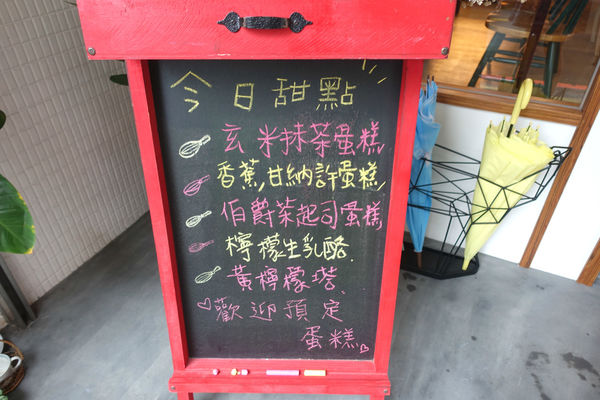 今日甜點
玄米抹茶蛋糕
香蕉,甘納許蛋糕,
伯爵茶起司蛋糕
檸檬生乳酪.
黃檸檬塔.
歡迎預定
蛋糕